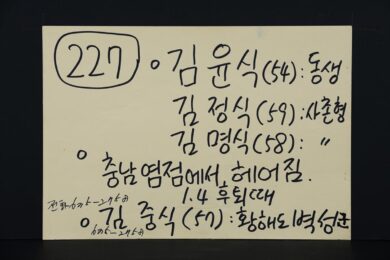 227 ∘ 김 윤식(54):동생
김 정식(59):사촌형
김 명식(58): 〃
∘ 충남 염점에서 헤어짐.
1.4 후퇴때
∘ 김 중식(57):황해도 벽성군